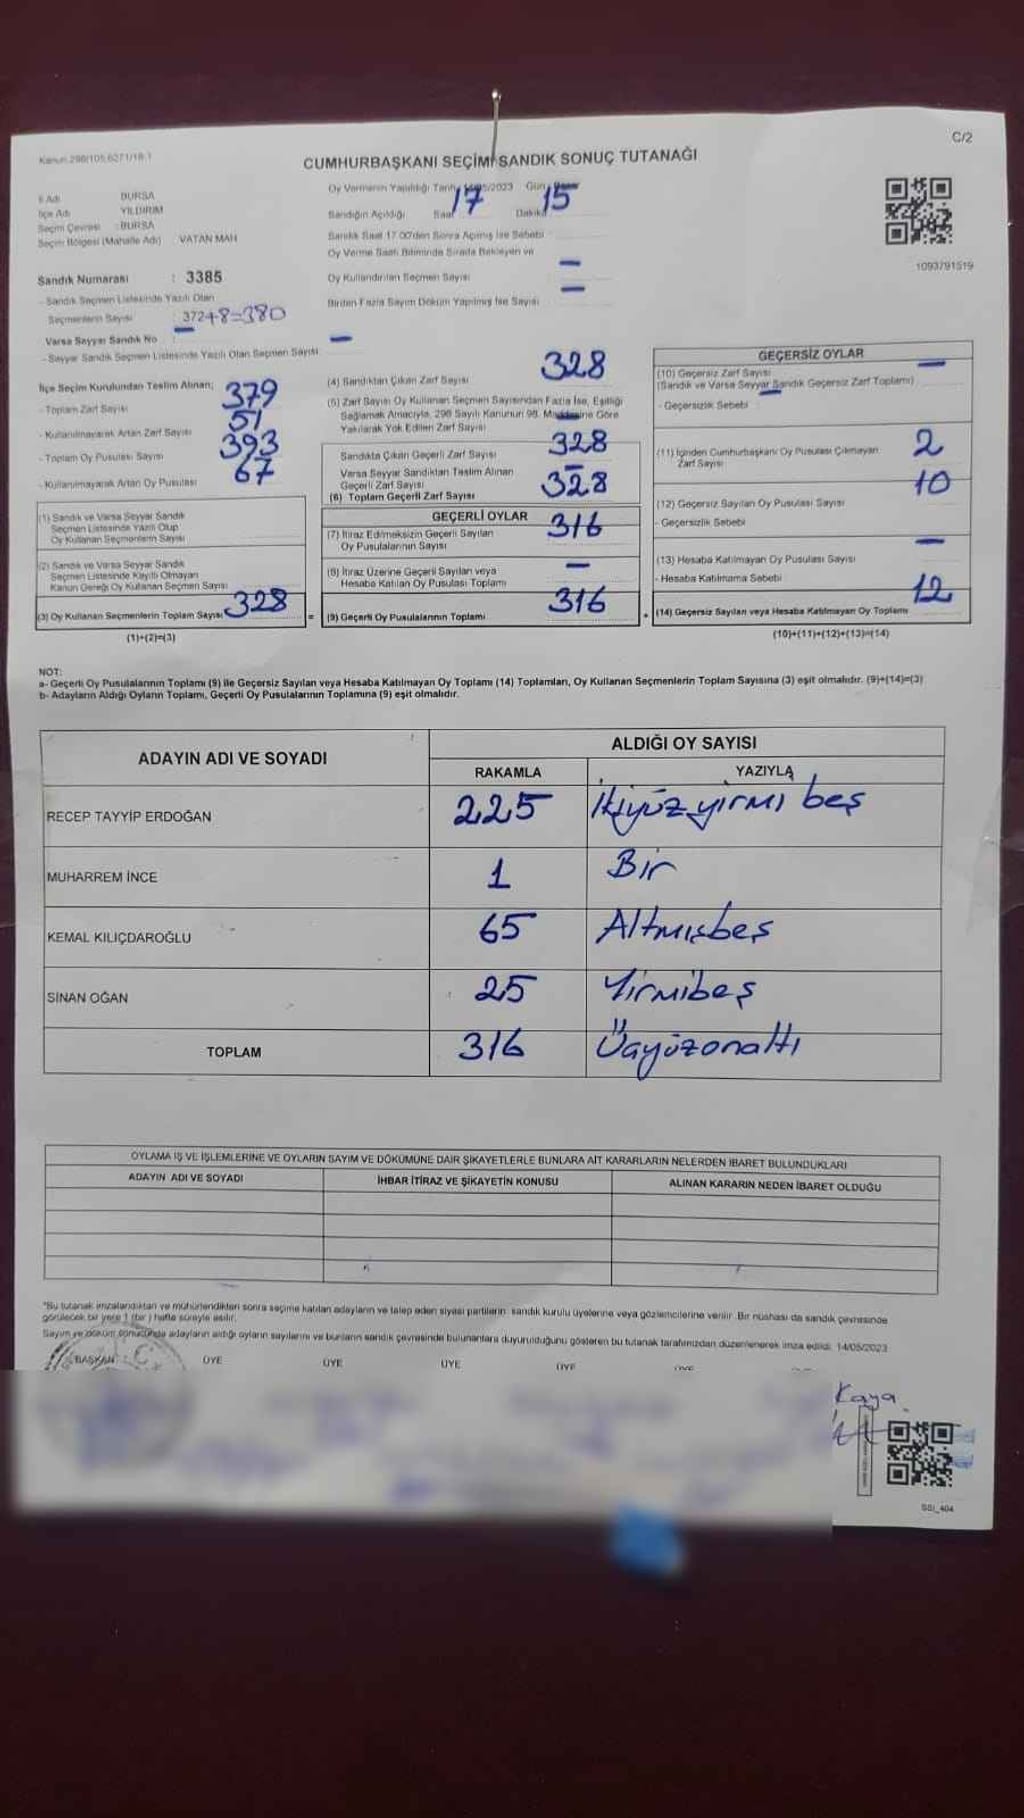 C/2
Kanun 298/105,6271/18.1
CUMHURBAŞKANI SEÇİMİ SANDIK SONUÇ TUTANAĞI
İl Adı BURSA
İlçe Adı YILDIRIM
Seçim Çevresi : BURSA
Seçim Bölgesi (Mahalle Adı) VATAN MAH
Oy Vermenin Yapıldığı Tarih 14/05/2023 Gün
Sandığın Açıldığı Saat 17 Dakika 15
Sandık Saat 17.00'den Sonra Açılmış İse Sebebi
Oy Verme Saati Bitiminde Sırada Bekleyen ve
Oy Kullandırılan Seçmen Sayısı –
Birden Fazla Sayım Döküm Yapılmış İse Sayısı –
1093791519
Sandık Numarası : 3385
- Sandık Seçmen Listesinde Yazılı Olan
Seçmenlerin Sayısı : 372+8=380
Varsa Seyyar Sandık No –
- Seyyar Sandık Seçmen Listesinde Yazılı Olan Seçmen Sayısı –
İlçe Seçim Kurulundan Teslim Alınan;
- Toplam Zarf Sayısı 379
- Kullanılmayarak Artan Zarf Sayısı 51
- Toplam Oy Pusulası Sayısı 393
- Kullanılmayarak Artan Oy Pusulası 67
(1) Sandık ve Varsa Seyyar Sandık
Seçmen Listesinde Yazılı Olup
Oy Kullanan Seçmenlerin Sayısı
(2) Sandık ve Varsa Seyyar Sandık
Seçmen Listesinde Kayıtlı Olmayan
Kanun Gereği Oy Kullanan Seçmen Sayısı
(3) Oy Kullanan Seçmenlerin Toplam Sayısı 328
(1)+(2)=(3)
(4) Sandıktan Çıkan Zarf Sayısı 328
(5) Zarf Sayısı Oy Kullanan Seçmen Sayısından Fazla İse, Eşitliği
Sağlamak Amacıyla, 298 Sayılı Kanunun 98. Maddesine Göre
Yakılarak Yok Edilen Zarf Sayısı –
Sandıkta Çıkan Geçerli Zarf Sayısı 328
Varsa Seyyar Sandıktan Teslim Alınan
Geçerli Zarf Sayısı –
(6) Toplam Geçerli Zarf Sayısı 328
GEÇERLİ OYLAR
(7) İtiraz Edilmeksizin Geçerli Sayılan
Oy Pusulalarının Sayısı 316
(8) İtiraz Üzerine Geçerli Sayılan veya
Hesaba Katılan Oy Pusulası Toplamı –
= (9) Geçerli Oy Pusulalarının Toplamı 316 +
GEÇERSİZ OYLAR
(10) Geçersiz Zarf Sayısı –
(Sandık ve Varsa Seyyar Sandık Geçersiz Zarf Toplamı)
- Geçersizlik Sebebi –
(11) İçinden Cumhurbaşkanı Oy Pusulası Çıkmayan
Zarf Sayısı 2
(12) Geçersiz Sayılan Oy Pusulası Sayısı 10
- Geçersizlik Sebebi
(13) Hesaba Katılmayan Oy Pusulası Sayısı –
- Hesaba Katılmama Sebebi
(14) Geçersiz Sayılan veya Hesaba Katılmayan Oy Toplamı 12
(10)+(11)+(12)+(13)=(14)
NOT:
a- Geçerli Oy Pusulalarının Toplamı (9) ile Geçersiz Sayılan veya Hesaba Katılmayan Oy Toplamı (14) Toplamları, Oy Kullanan Seçmenlerin Toplam Sayısına (3) eşit olmalıdır. (9)+(14)=(3)
b- Adayların Aldığı Oyların Toplamı, Geçerli Oy Pusulalarının Toplamına (9) eşit olmalıdır.
ADAYIN ADI VE SOYADI ALDIĞI OY SAYISI
RAKAMLA YAZIYLA
RECEP TAYYİP ERDOĞAN 225 İkiyüzyirmi beş
MUHARREM İNCE 1 Bir
KEMAL KILIÇDAROĞLU 65 Altmışbeş
SİNAN OĞAN 25 Yirmibeş
TOPLAM 316 Üçyüzonaltı
OYLAMA İŞ VE İŞLEMLERİNE VE OYLARIN SAYIM VE DÖKÜMÜNE DAİR ŞİKAYETLERLE BUNLARA AİT KARARLARIN NELERDEN İBARET BULUNDUKLARI
ADAYIN ADI VE SOYADI İHBAR İTİRAZ VE ŞİKAYETİN KONUSU ALINAN KARARIN NEDEN İBARET OLDUĞU
"Bu tutanak imzalandıktan ve mühürlendikten sonra seçime katılan adayların ve talep eden siyasi partilerin sandık kurulu üyelerine veya gözlemcilerine verilir. Bir nüshası da sandık çevresinde
görülecek bir yere 1 (bir) hafta süreyle asılır.
Sayım ve döküm sonucunda adayların aldığı oyların sayılarını ve bunların sandık çevresinde bulunanlara duyurulduğunu gösteren bu tutanak tarafımızdan düzenlenerek imza edildi. 14/05/2023
BAŞKAN ÜYE ÜYE ÜYE ÜYE
Kaya
SSI_404